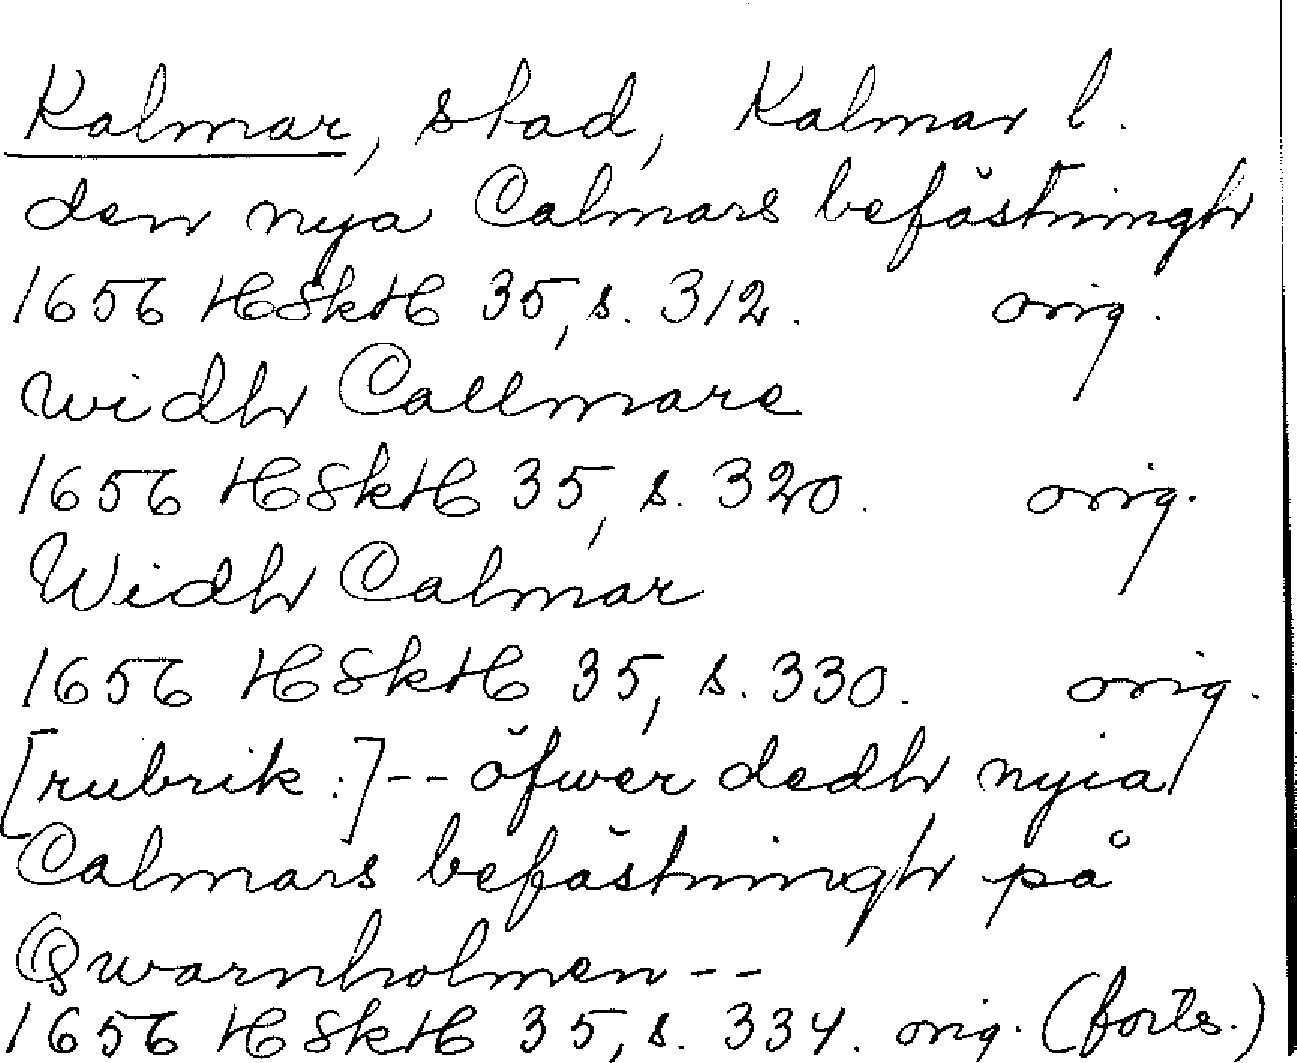 Kalmar, stad, Kalmar l.
den nya Calmars befästningh
1656 HSkH 35, s. 312. orig.
widh Callmare
1656 HSkH 35, s. 320. orig.
Widh Calmar
1656 HSkH 35, s. 330. orig.
[rubrik:]-- öfwer dedh nyia
Calmars befästningh på
Qwarnholmen--
1656 HSkH 35, s. 334. orig. (forts.)